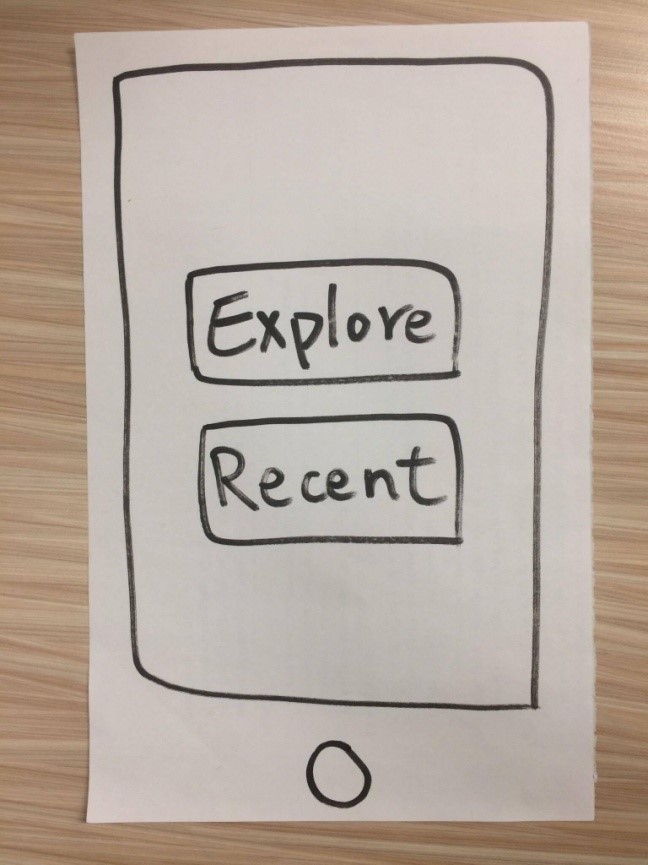 Explore
Recent